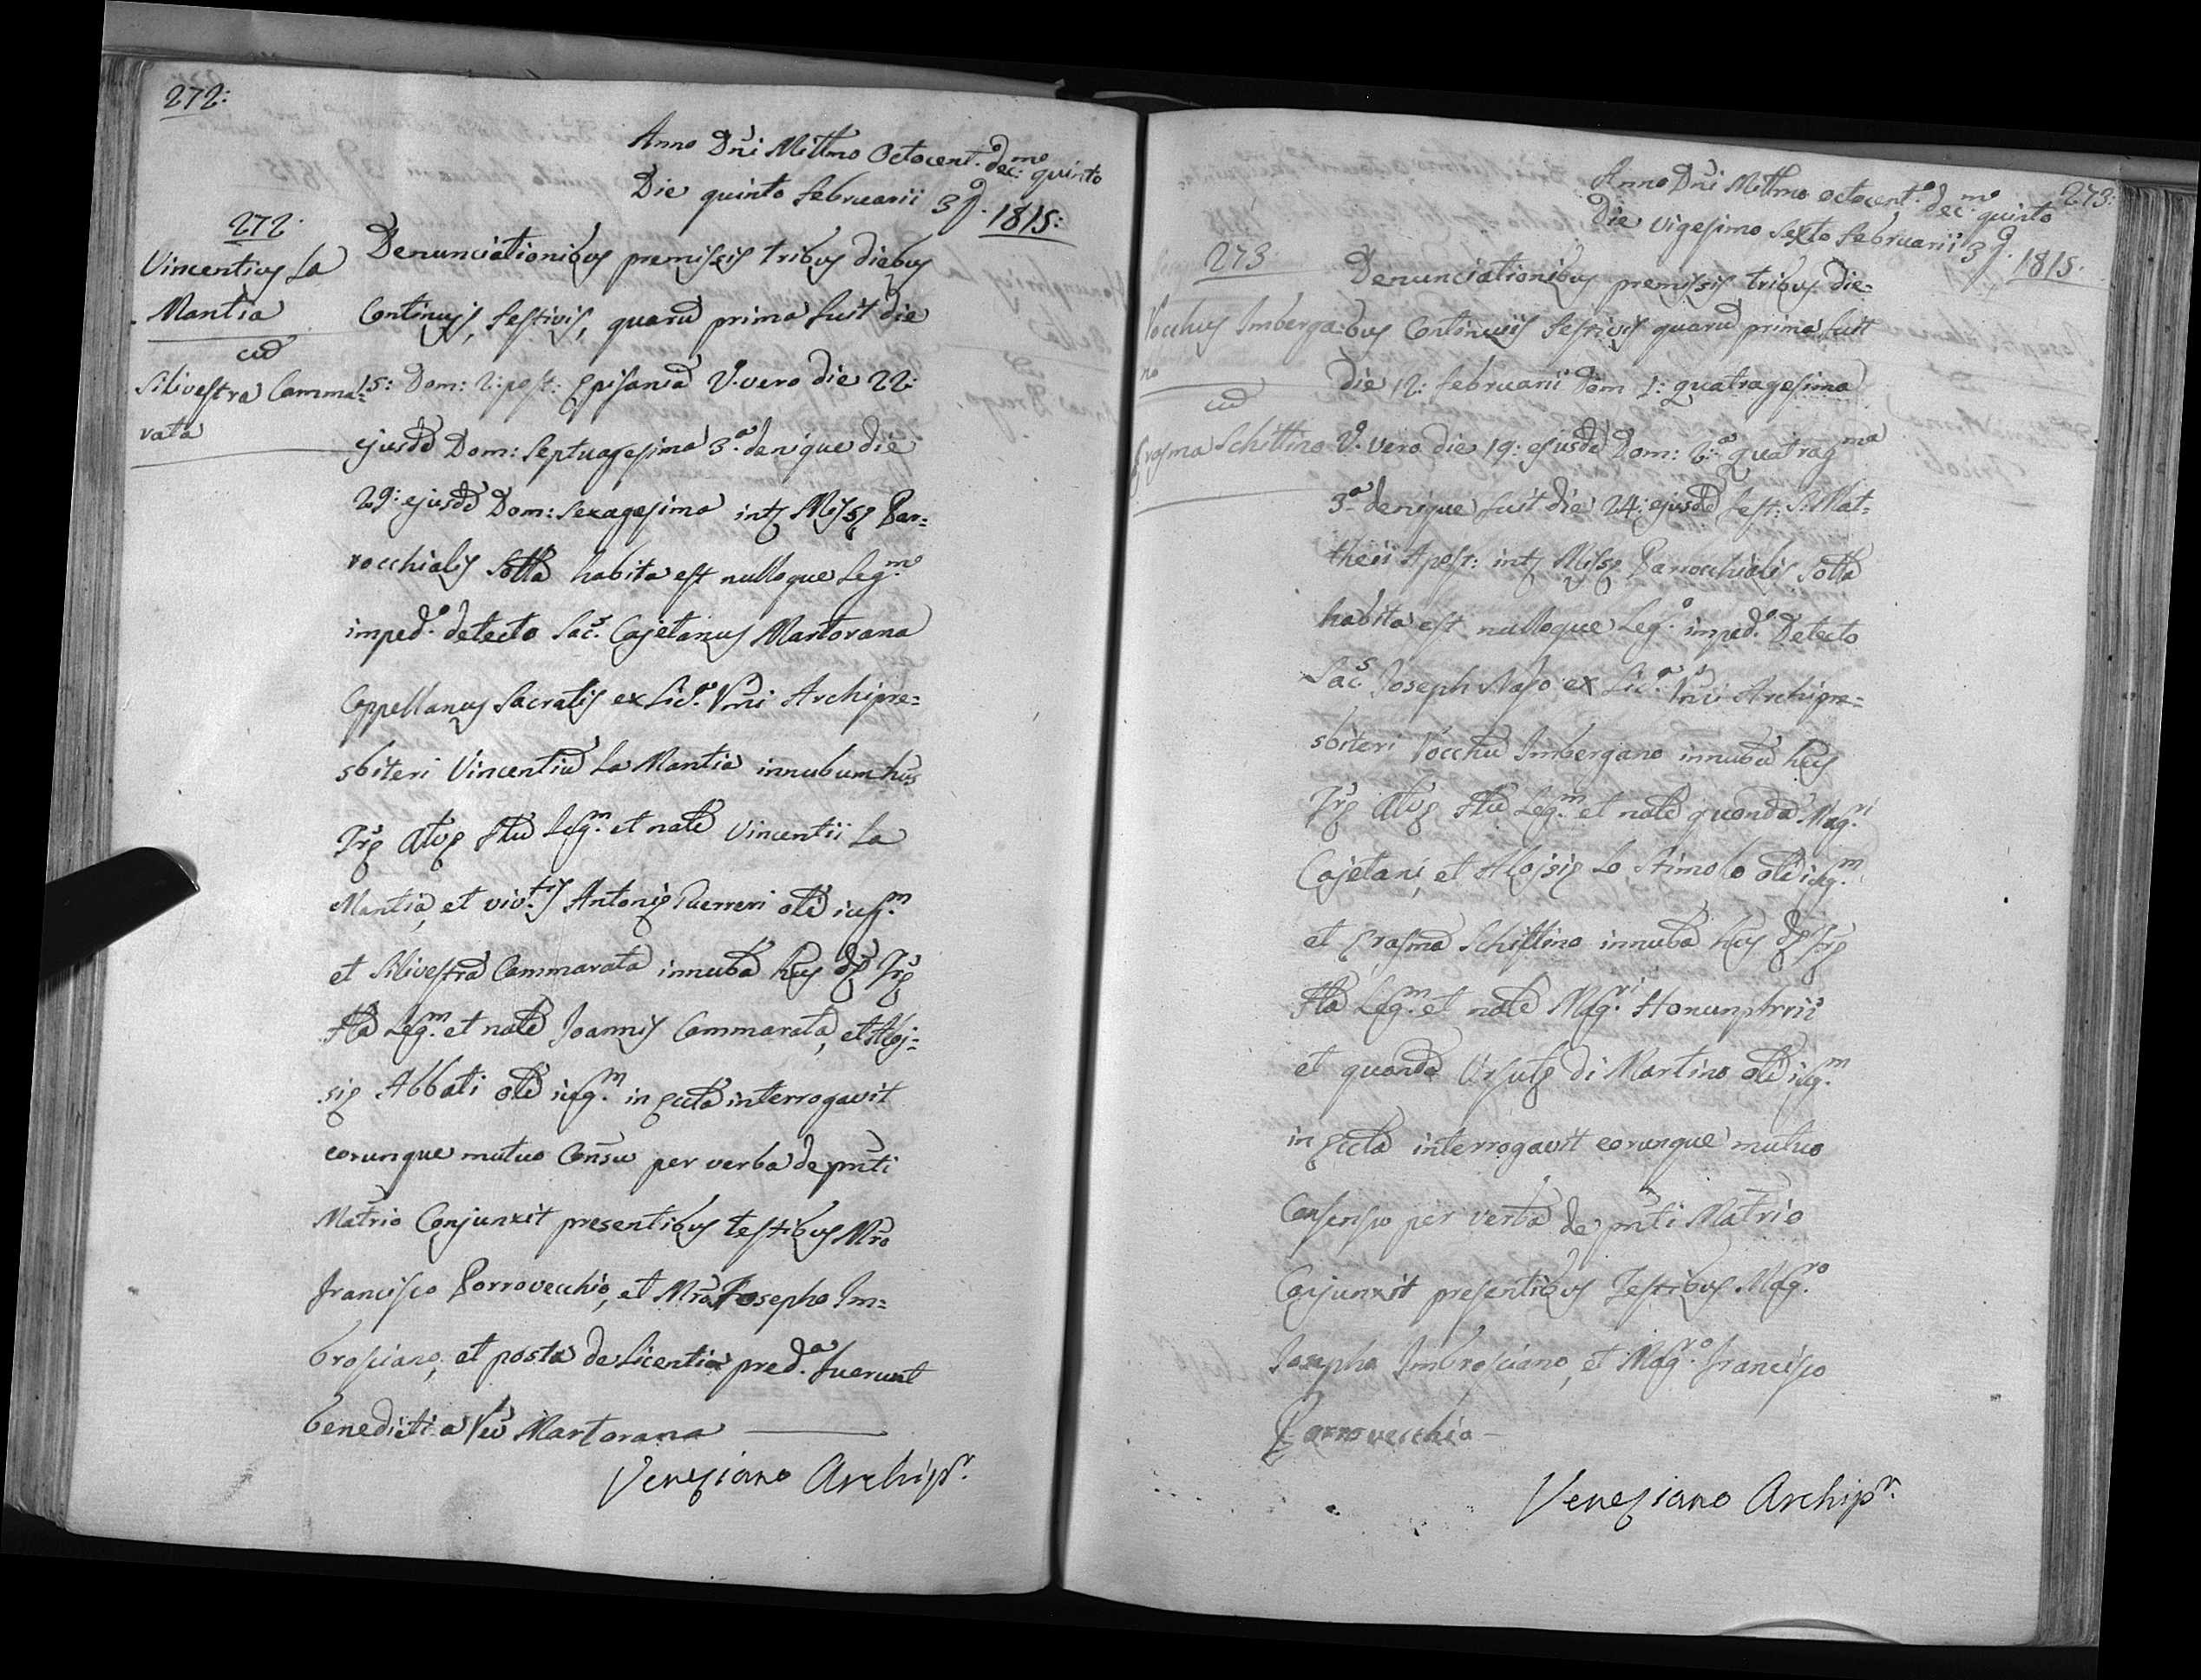 272:
Anno Dñi Millmo Octocent.º dec:mo quinto
Die quinto februarii 3æ Ind. 1815:
272
Vincentius La
Mantia
cum
Silivestra Camma=
rata
Denunciationibus premissis tribus diebus
Continuis, festivis, quarũ prima fuit die
15: Dom: 2: post: Episaniã 2.ª vero die 22:
ejusdẽ Dom: Septuagesima 3.ª denique die
29: ejusdẽ Dom: Sexagesima intꝫ Misse Par=
rocchialis Sollã habita est nulloque Leg.mo
imped.º detecto Sac.s Cajetanus Martorana
Cappellanus Sacralis ex Lic.ª Vmi Archipre=
sbiteri Vincentiũ La Mantia innubum hus
Træ atus fliũ Leg.m et natlẽ Vincentii La
Mantia, et viv.tis Antonie Guerreri olĩ iug.m
et Silivestrã Cammarata innubã hus dæ Træ
fliã Leg.m et natlẽ Joannis Cammarata, et Aloj=
sie Abbati olĩ iug.m in Ecclã interrogavit
eorunque mutuo Consũ per verba de pñti
Matrio Conjunxit presentibus testibus Mro
Francisco Porrovecchio, et Mro Josepho Im=
brosciano, et posta de Licentia pred.ª fuerunt
benedicti a Rev Martorana
Veneziano Archipr.
273:
Anno Dñi Millmo octocent.º dec.mo quinto
Die Vigesimo Sexto februarii 3æ Ind. 1815.
273.
Rocchus Imberga=
no
cum
Erasma Schittino
Denunciationibus premissis tribus die=
bus Continuis festivis quarũ prima fuit
die 12: februarii Dom 1: quatragesima
2.ª vero die 19: ejusdẽ Dom: 2.ª quatrag.ma
3.ª denique fuit die 24: ejusdẽ fest: S. Mat=
theii Apost: intꝫ Misse Parrocchialis Sollã
habita est nulloque Leg.º imped.º Detecto
Sac.s Joseph Naso ex Lic.ª Vmi Archipre=
sbiteri Rocchũ Imbergano innubũ hus
Træ atus fliũ Leg.m et natlẽ quondã Mag.ri
Cajetani, et Alojsie Lo Stimolo olĩ iug.m
et Erasmã Schittino innubã hus dæ Træ
fliã Leg.m et natlẽ Mag.ri Honunphrii
et quondã Ursule di Martino olĩ iug.m
in Ecclã interrogavit eorunque mutuo
Consensu per verba de pñti Matrio
Conjunxit presentibus Testibus Mag.ro
Josepho Imbrosciano, et Mag.ro Francisco
Porrovecchio
Veneziano Archipr.